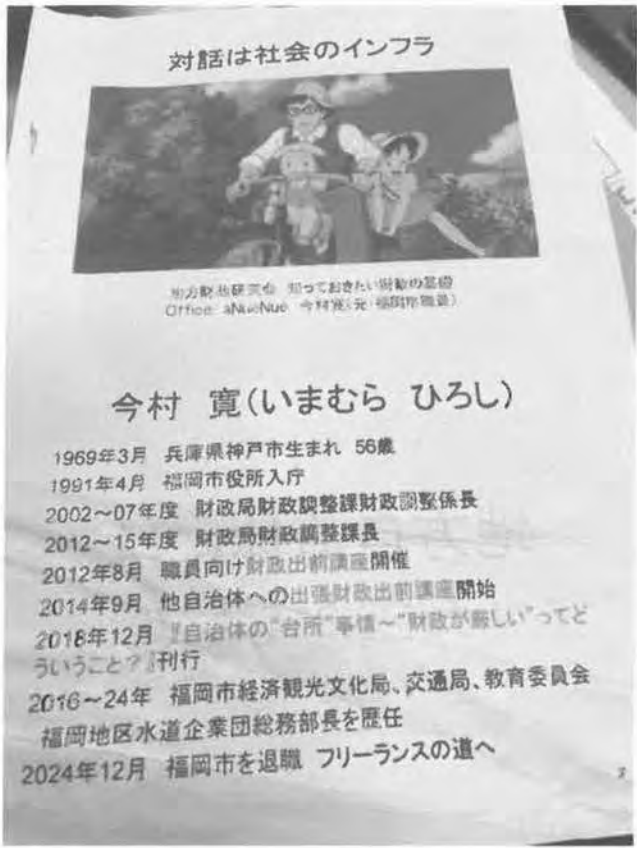 対話は社会のインフラ
地方財政研究会 知っておきたい財政の基礎
Office aNueNue 今村寛(元・福岡市職員)
今村 寛(いまむら ひろし)
1969年3月 兵庫県神戸市生まれ 56歳
1991年4月 福岡市役所入庁
2002~07年度 財政局財政調整課財政調整係長
2012~15年度 財政局財政調整課長
2012年8月 職員向け財政出前講座開催
2014年9月 他自治体への出張財政出前講座開始
2018年12月 『自治体の“台所”事情~“財政が厳しい”ってど
ういうこと?』刊行
2016~24年 福岡市経済観光文化局、交通局、教育委員会
福岡地区水道企業団総務部長を歴任
2024年12月 福岡市を退職 フリーランスの道へ